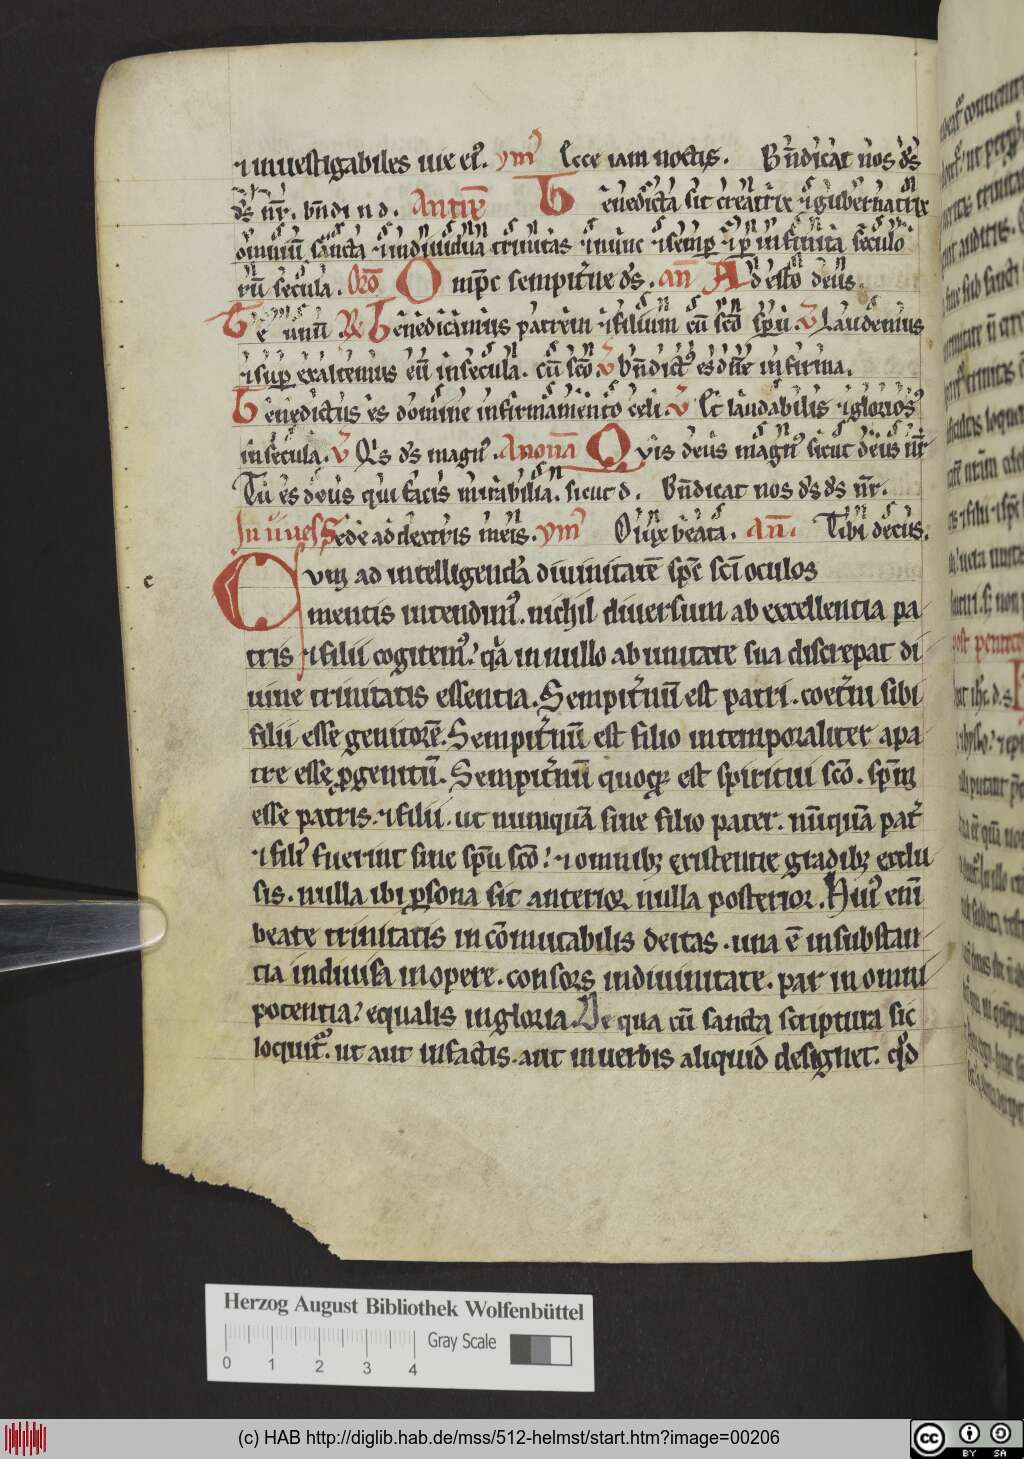 ⁊ inuestigabiles uie ei᷒. ymꝰ Ecce iam noctis. Bn̄dicat nos ds̄
ds̄ nr̄. bn̄di n d. Antip̄ Benedicta sit creatrix ⁊ gubernatrix
omniū sancta ⁊ indiuidua trinitas ⁊ nunc ⁊ semꝑ ⁊ ꝑ infinita seculo
rū secula. Oro̅ Omp̄c sempit᷑ne ds̄. an̄ Adesto deus
Te unū. ℟ Benedicamus patrem ⁊ filium cū sc̄o sp̄u. ℣ Laudemus
⁊ suꝑ exaltemus eū in secula. cū sc̄o ℣ Bn̄dictꝰ es dn̄e in firma.
Benedictus es domine in firmamento celi. ℣ Et laudabilis ⁊ gloriosꝰ
in secula. ℣ Q's ds̄ magnꝰ. Ad nonā Quis deus magnꝰ sicut deus nr̄
Tu es deus qui facis mirabilia. sicut d. Bn̄dicat nos ds̄ ds̄ nr̄.
In ii ues Sede ad dextris meis. ymꝰ O lux beata. An̄. Tibi decus.
c Cum ad intelligendā diuinitatē sp̄e sc̄i oculos
mentis intendimꝰ. nichil diuersum ab excellentia pa
tris ⁊ filii cogitemꝰ: q̄a in nullo ab unitate sua discrepat di
uine trinitatis essentia. Sempit᷑nū est patri. coet᷑ni sibi
filii esse genitorē. Sempit᷑nū est filio intemporaliter a pa
tre esse ꝓgenitū. Sempit᷑nū quoqꝫ est spiritui sc̄o. sp̄m
esse patris. ⁊ filii. ut nunquā sine filio pater. nūquā pat᷑
⁊ filiꝰ fuerint sine sp̄u sc̄o: ⁊ omnibꝫ existentie gradibꝫ exclu
sis. nulla ibi ꝑsona sit anterior nulla posterior. Huiꝰ eni̅
beate trinitatis incōmutabilis deitas. una ē in substan
tia indiuisa in opere. consors in diuinitate. par in omni
potentia: equalis in gloria. De qua cū sancta scriptura sic
loquit᷑. ut aut in factis. aut in uerbis aliquid designet. qd̄
Herzog August Bibliothek Wolfenbüttel
Gray Scale
0 1 2 3 4
(c) HAB http://diglib.hab.de/mss/512-helmst/start.htm?image=00206
cc BY SA